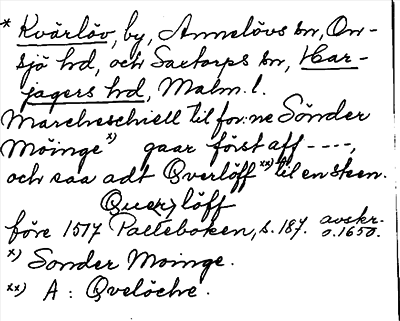 * Kvärlöv, by, Annelövs sn, On-
sjö hd, och Saxtorps sn, Har-
jagers hd, Malm. l.
Marcheschiell til for:ne Sönder
Möinge x) gaar först aff ----,
och saa adt Qverlöff xx) til en steen.
Quer<>löff
före 1517 Palteboken, s. 187. avskr. o. 1650.
x) Sonder Moinge.
xx) A : Qvelöche.